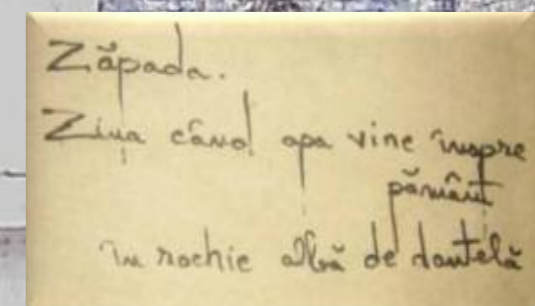 Zăpada.
Ziua când apa vine înspre
pământ
în rochie albă de dantelă